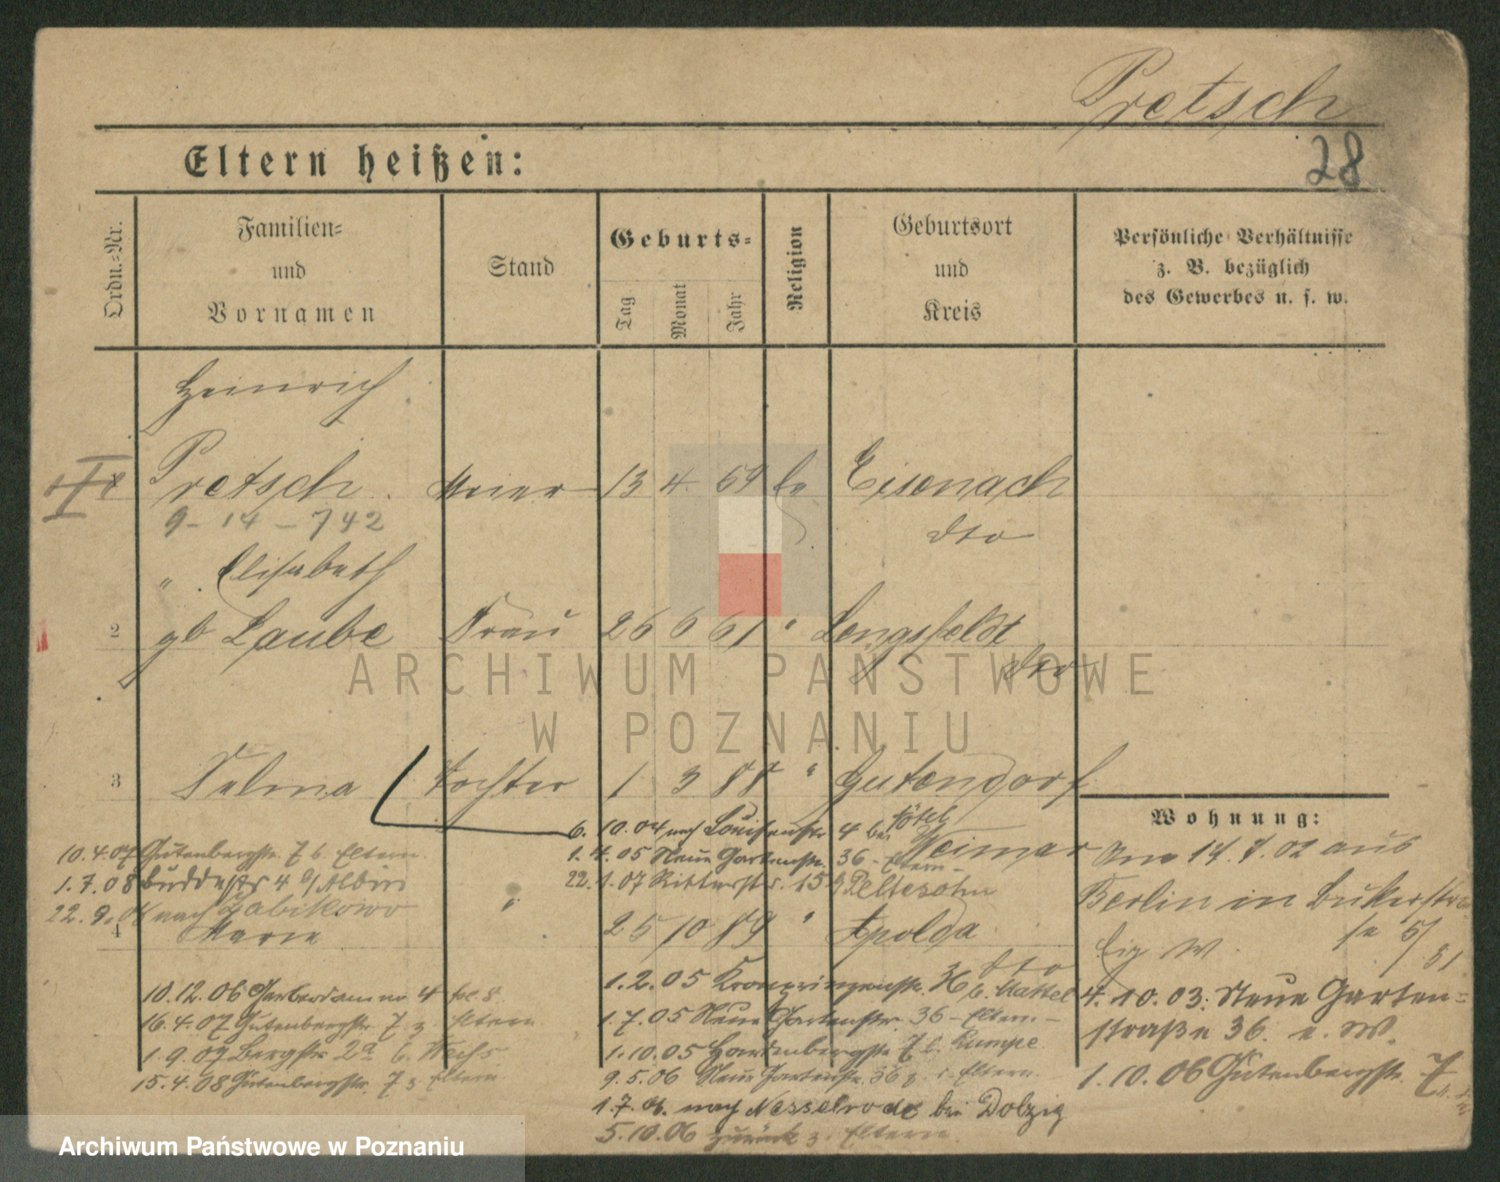 Pretsch
28
Eltern heißen:
Ordn.-Nr.
Familien-
und
Vornamen
Stand
Geburts-
Tag
Monat
Jahr
Religion
Geburtsort
und
Kreis
Persönliche Verhältnisse
z. B. bezüglich
des Gewerbes u. s. w.
Heinrich
Pretsch 13 4. 69 Eisenach
9 - 14 - 742 dto
" Elisabeth
2 gb Laube Frau 26 6 61 " Lengsfeldt
dto
3 Selma Tochter 1 3 88 " Gutendorf
6. 10.04 nach Louisenstr 4 bei
Weimar
1.4.05 Neue Gartenstr. 36 - Eltern -
22.1.07 Ritterstr. 15 b Peltesohn
10.4.07 Gutenbergstr. 7 b. Eltern
1.7.08 Buddestr 4
22.9. nach Zabikowo
4 Marie " 25 10 89 " Apolda
dto
1.2.05 Kronprinzenstr. 36
1.7.05 Neue Gartenstr. 36 - Eltern -
1.10.05 Hardenbergstr. 7 b. Kumpe
9.5.06 Neue Gartenstr. 36 z. Eltern.
1.7.06. nach Nesselrode bei Dolzig
5.10.06 zurück z. Eltern.
10.12.06 Gerberdamm 4
16.4.07 Gutenbergstr. 7 z. Eltern
1.9.07 Bergstr. 2a b.
15.4.08 Gutenbergstr. 7 z. Eltern
Wohnung:
Am 14.7.02 aus
Berlin in Bukerstr.
4.10.03. Neue Garten-
straße 36. e. W.
1.10.06 Gutenbergstr. 7
ARCHIWUM PAŃSTWOWE
W POZNANIU
Archiwum Państwowe w Poznaniu